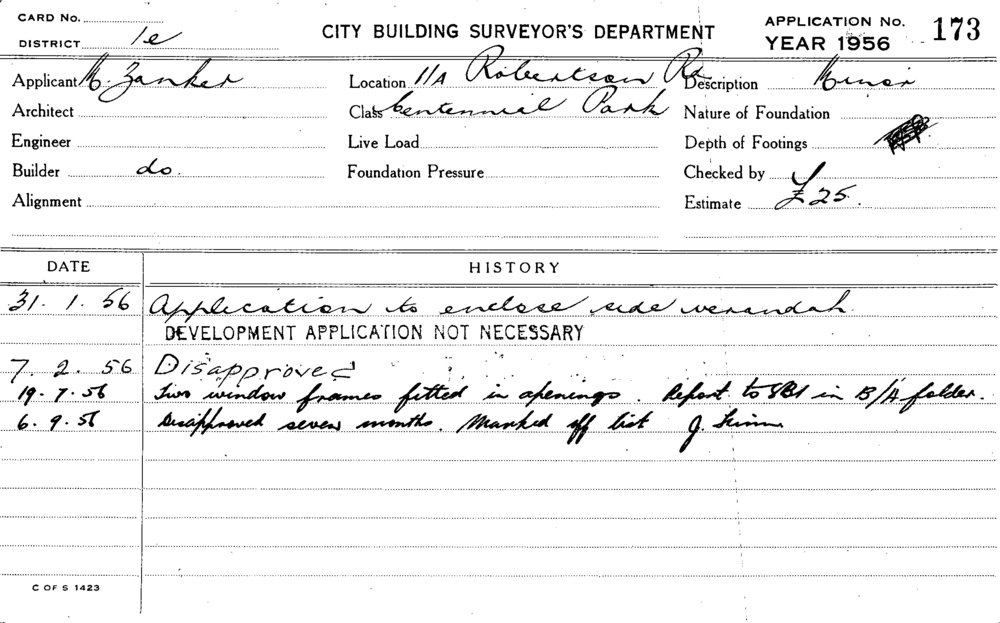 CARD No.
DISTRICT 1e
CITY BUILDING SURVEYOR'S DEPARTMENT
APPLICATION No. 173
YEAR 1956
Applicant M. Zanker
Location 11A Robertson Rd
Description Minor
Architect
Class Centennial Park
Nature of Foundation
Engineer
Live Load
Depth of Footings
Builder do.
Foundation Pressure
Checked by
Alignment
Estimate £25.
DATE HISTORY
31. 1. 56 Application to enclose side verandah
DEVELOPMENT APPLICATION NOT NECESSARY
7. 2. 56 Disapproved
19. 7. 56 Two window frames fitted in openings. Report to SBI in B/A folder.
6. 9. 56 Disapproved seven months. Marked off list J.
C OF S 1423